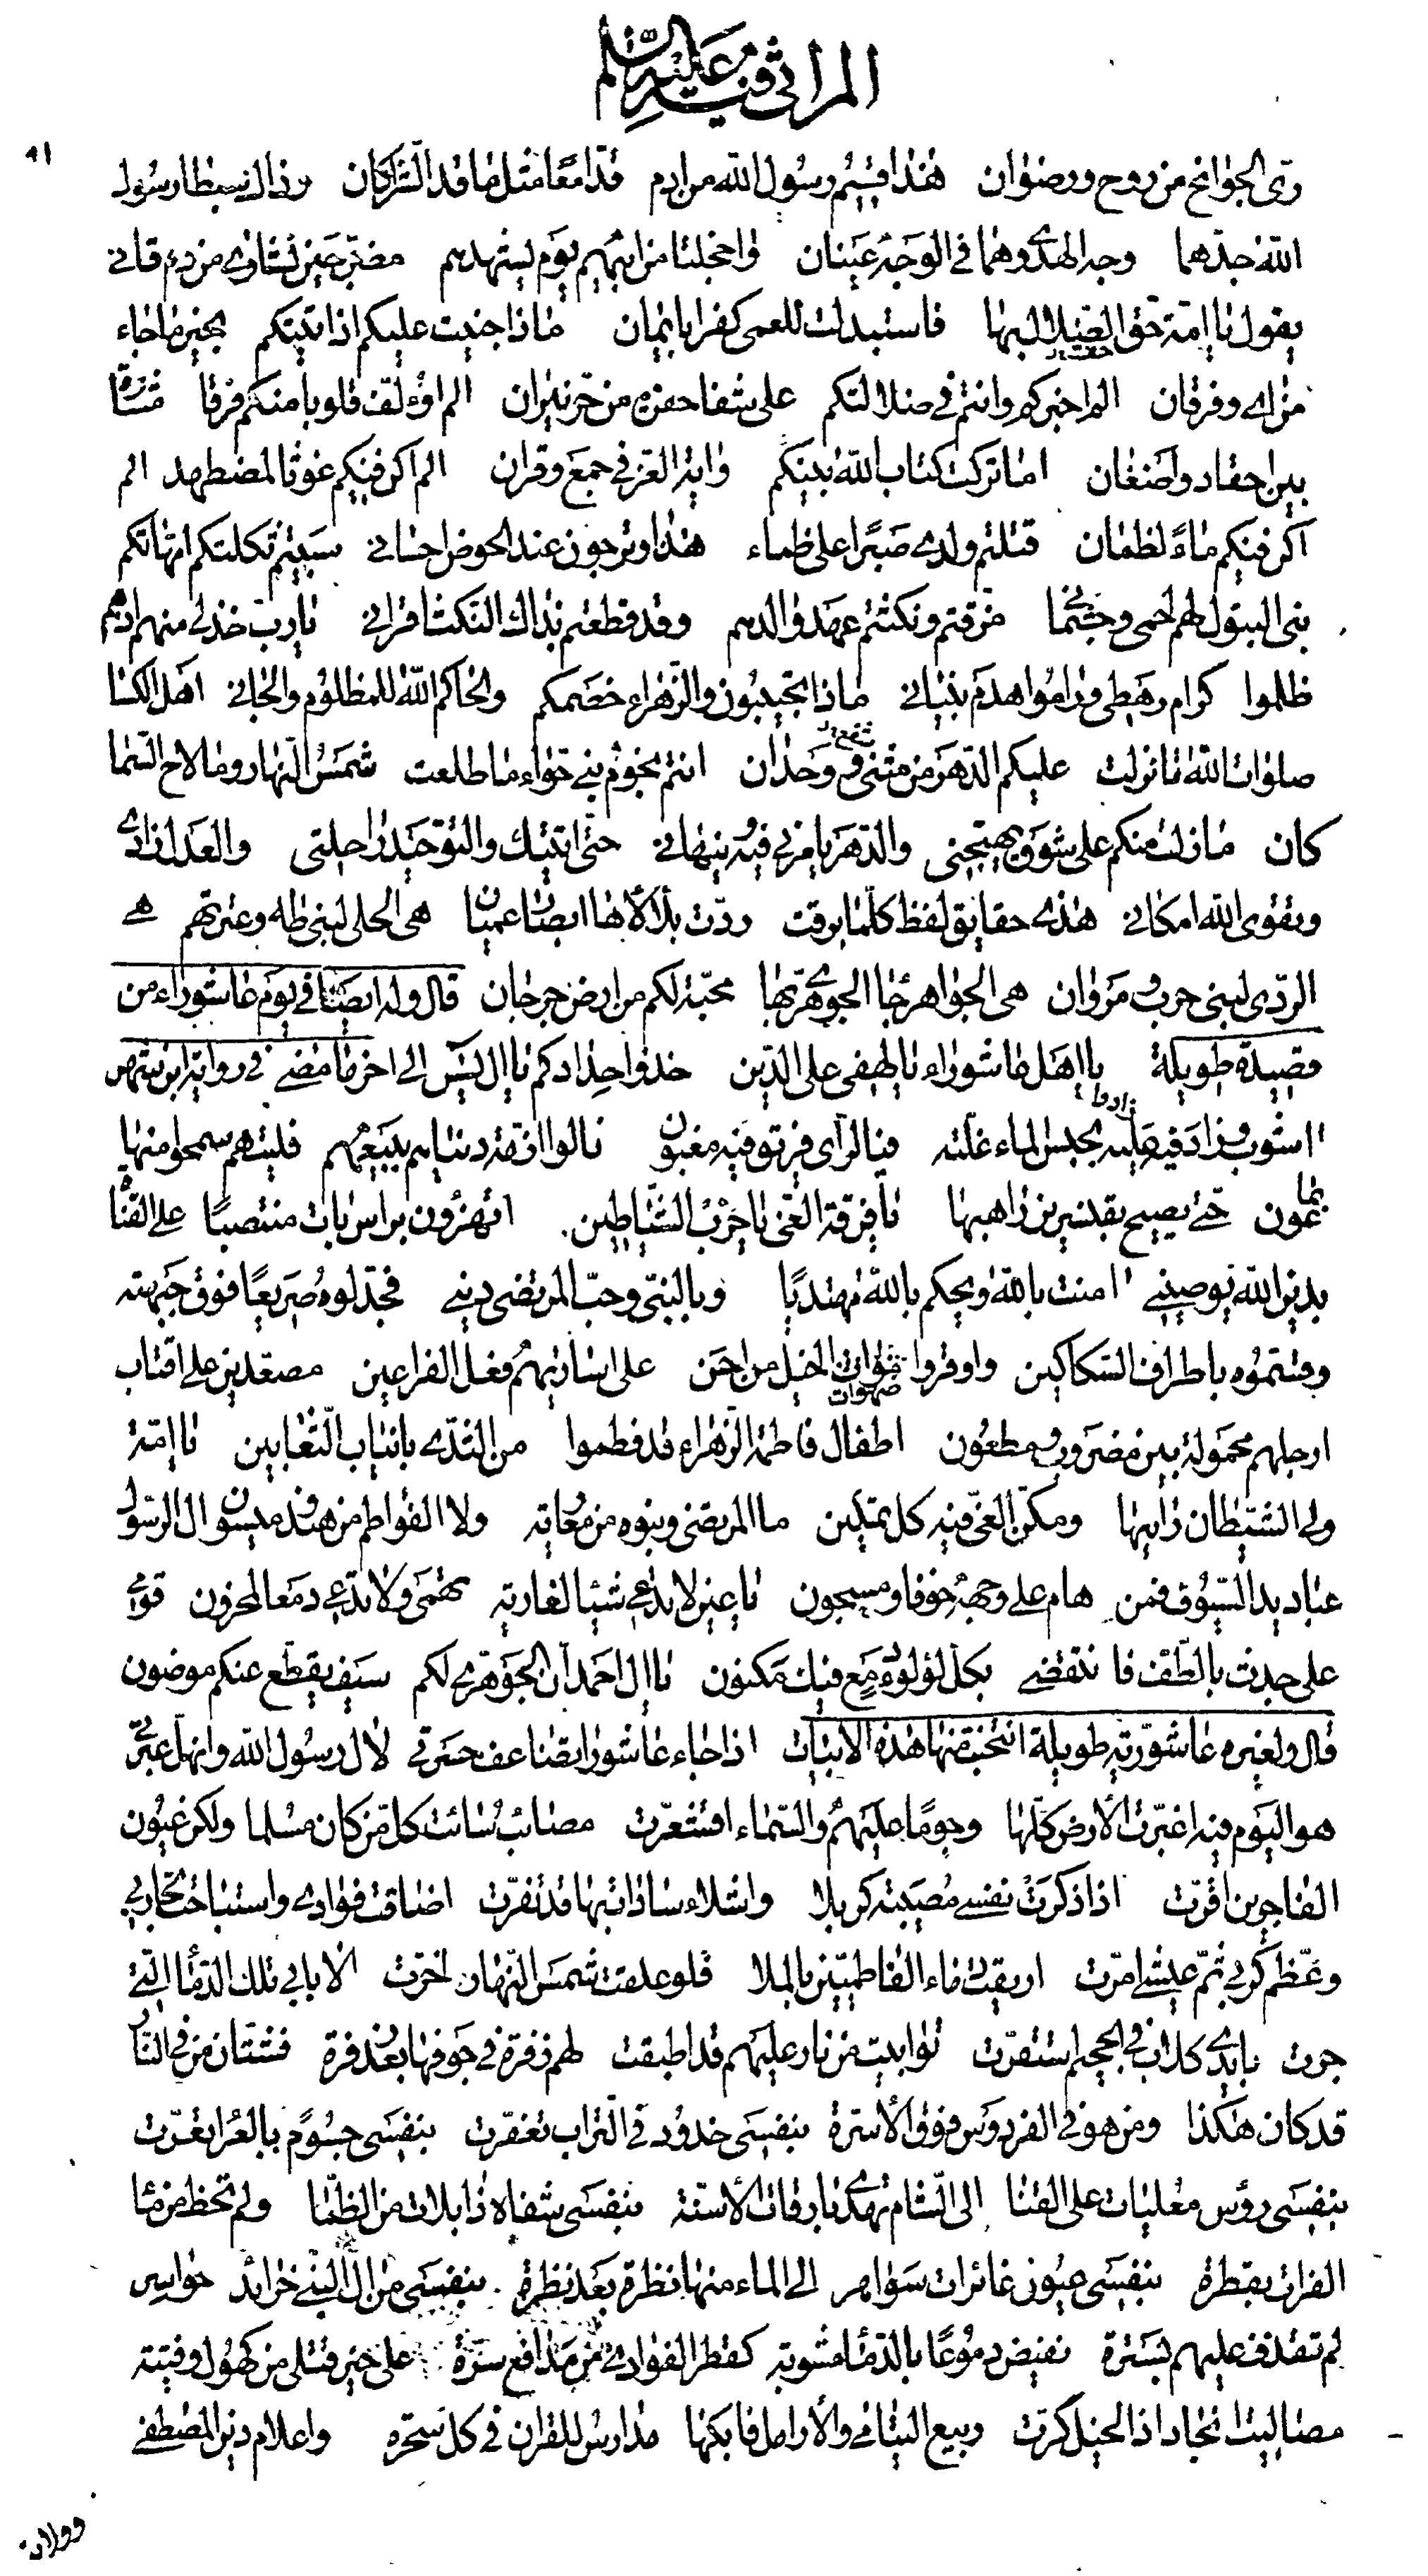 المراثي فيه عليه السلام
٩١
ريّ الجوانح من روح ورضوان هذا قسيم رسول الله من ادم قدّا معًا مثل ما قد الشراكان وذان سبطا رسول
الله جدّهما وجه الهدى وهما في الوجه عينان واخجلتا من ابيهم يوم يشهدهم مضرّجين نشاوى من دم قاني
يقول يا امّة حقّ الضلال بها فاستبدلت للعمى كفرا بايمان ماذا جنيت عليكم اذ اتيتكم بخير ما جاء
من اي وفرقان الم اجركم وانتم في ضلالتكم على شفا حفرة من حرّ نيران الم اؤلّف قلوبا منكم فرقا مثارة
بين احقاد واضغان اما تركت كتاب الله بينكم واية العزّ في جمع وقران الم اكن فيكم غوثا لمضطهد الم
اكن فيكم ماءً لظمان قتلتم ولدي صبرًا على ظماء هذا وترجون عند الحوض احساني سبيتم ثكلتكم امّهاتكم
بني البتول لهم لحمي وجثماني مزّقتم ونكثتم عهد والدهم وقد قطعتم بذاك النكث اقراني يا ربّ خذ لي منهم اذ هم
ظلموا كرام رهطي وراموا هدم بنياني ماذا تجيبون والزهراء خصمكم والحاكم الله للمظلوم والجاني اهل الكسا
صلوات الله ما نزلت عليكم الدهر من مثنى ووحدان انتم نجوم بني حوّاء ما طلعت شمس النهار وما لاح السما
كان ما زلت منكم على شوق يهيجني والدهر يامرني فيه وينهاني حتّى اتيتك والتوحيد راحلتي والعدل زادي
وتقوى الله امكاني هذي حقايق لفظ كلّما برقت ردّت بلألائها ابصار عميان هي الحلى لبني طه وعترتهم هي
الردى لبني حرب ومروان هي الجواهر جا الجوهريّ بها محبّة لكم من ارض جرجان قال وله ايضًا في يوم عاشوراء من
قصيدة طويلة يا اهل عاشوراء يا لهفي على الدين خذوا حدادكم يا ال يسٓ الى اخر ما مضى في رواية ابن شهر
اشوب وزاد فيه بحبس الماء غلّته فيا لرأي فريق فيه مغبون نالوا ازقة دنياهم ببيعهم فليتهم سمحوا منها
بماعون حتّى يصيح بقنسرين راهبها يا فرقة الغيّ يا حزب الشياطين اتهزؤن براس بات منتصبًا على القنا
بدين الله يوصيني امنت بالله ويحكم بالله مهتديًا وبالنبيّ وحبّ المرتضى ديني فجدّلوه صريعًا فوق جبهته
وقسّموه باطراف السكاكين واوقروا صهوات الخيل من احن على اساريهم فعل الفراعين مصفّدين على اقتاب
ارحلهم محمولة بين مضروب ومطعون اطفال فاطمة الزهراء قد فطموا من الثدي بانياب الثعابين يا امّة
ولي الشيطان رايتها ومكّن الغيّ فيه كل تمكين ما المرتضى وبنوه من معاوية ولا الفواطم من هند وميسون ال الرسول
عباديد السيوف فمن هام على وجهه خوفا ومسجون يا عين لا تدعي شيئا لغادية تهمى ولا تدعي دمعا لمحزون قومي
على جدث بالطّف فانتقضي بكل لؤلؤ دمع فيك مكنون يا ال احمد ان الجوهري لكم سيف يقطع عنكم موضون
قال ولغيره عاشوريّة طويلة انتخبت منها هذه الابيات اذا جاء عاشورا تضاعف حسرتي لال رسول الله وانهلّ عبرتي
هو اليوم فيه اغبرّت الأرض كلّها وجومًا عليهم والسماء اقشعرّت مصائب سائت كل من كان مسلما ولكن عيون
الفاجرين اقرّت اذا ذكرت نفسي مصيبة كربلا واشلاء سادات بها قد تفرّت اضاقت فؤادي واستباحت تجاربي
وعظّم كربي ثم عيشي امرّت اريقت دماء الفاطميّين بالملا فلو عقلت شمس النهار لخرّت الا بابي تلك الدماء التي
جرت بايدي كلاب في الجحيم استقرّت توابيت من نار عليهم قد اطبقت لهم زفرة في جوفها بعد زفرة فشتّان من في النار
قد كان هكذا ومن هو في الفردوس فوق الأسرّة بنفسي خدود في التراب تعفّرت بنفسي جسوم بالعرا تعرّت
بنفسي رؤس معليات على القنا الى الشام تهدى بارقات الأسنّة بنفسي شفاه ذابلات من الظّما ولم تحظ من ماء
الفرات بقطرة بنفسي عيون غائرات سواهر الى الماء منها نظرة بعد نظرة بنفسي من ال النبي خرائد حواسر
لم تقذف عليهم بسترة تفيض دموعًا بالدّماء مشوبة كقطر الغوادي من مدافع سرّة على خير قتلى من كهول وفتية
مصاليت انجاد اذا الخيل كرّت ربيع اليتامى والأرامل فابكها مدارس للقران في كل سحرة واعلام دين المصطفى
وولاته